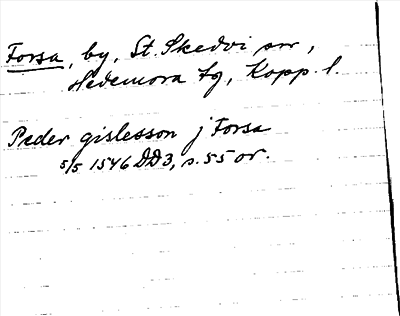 Forsa, by, St. Skedvi snr,
Hedemora tg, Kopp. l.
Peder gislesson j Forsa
5/5 1546 DD3, s. 55 or.